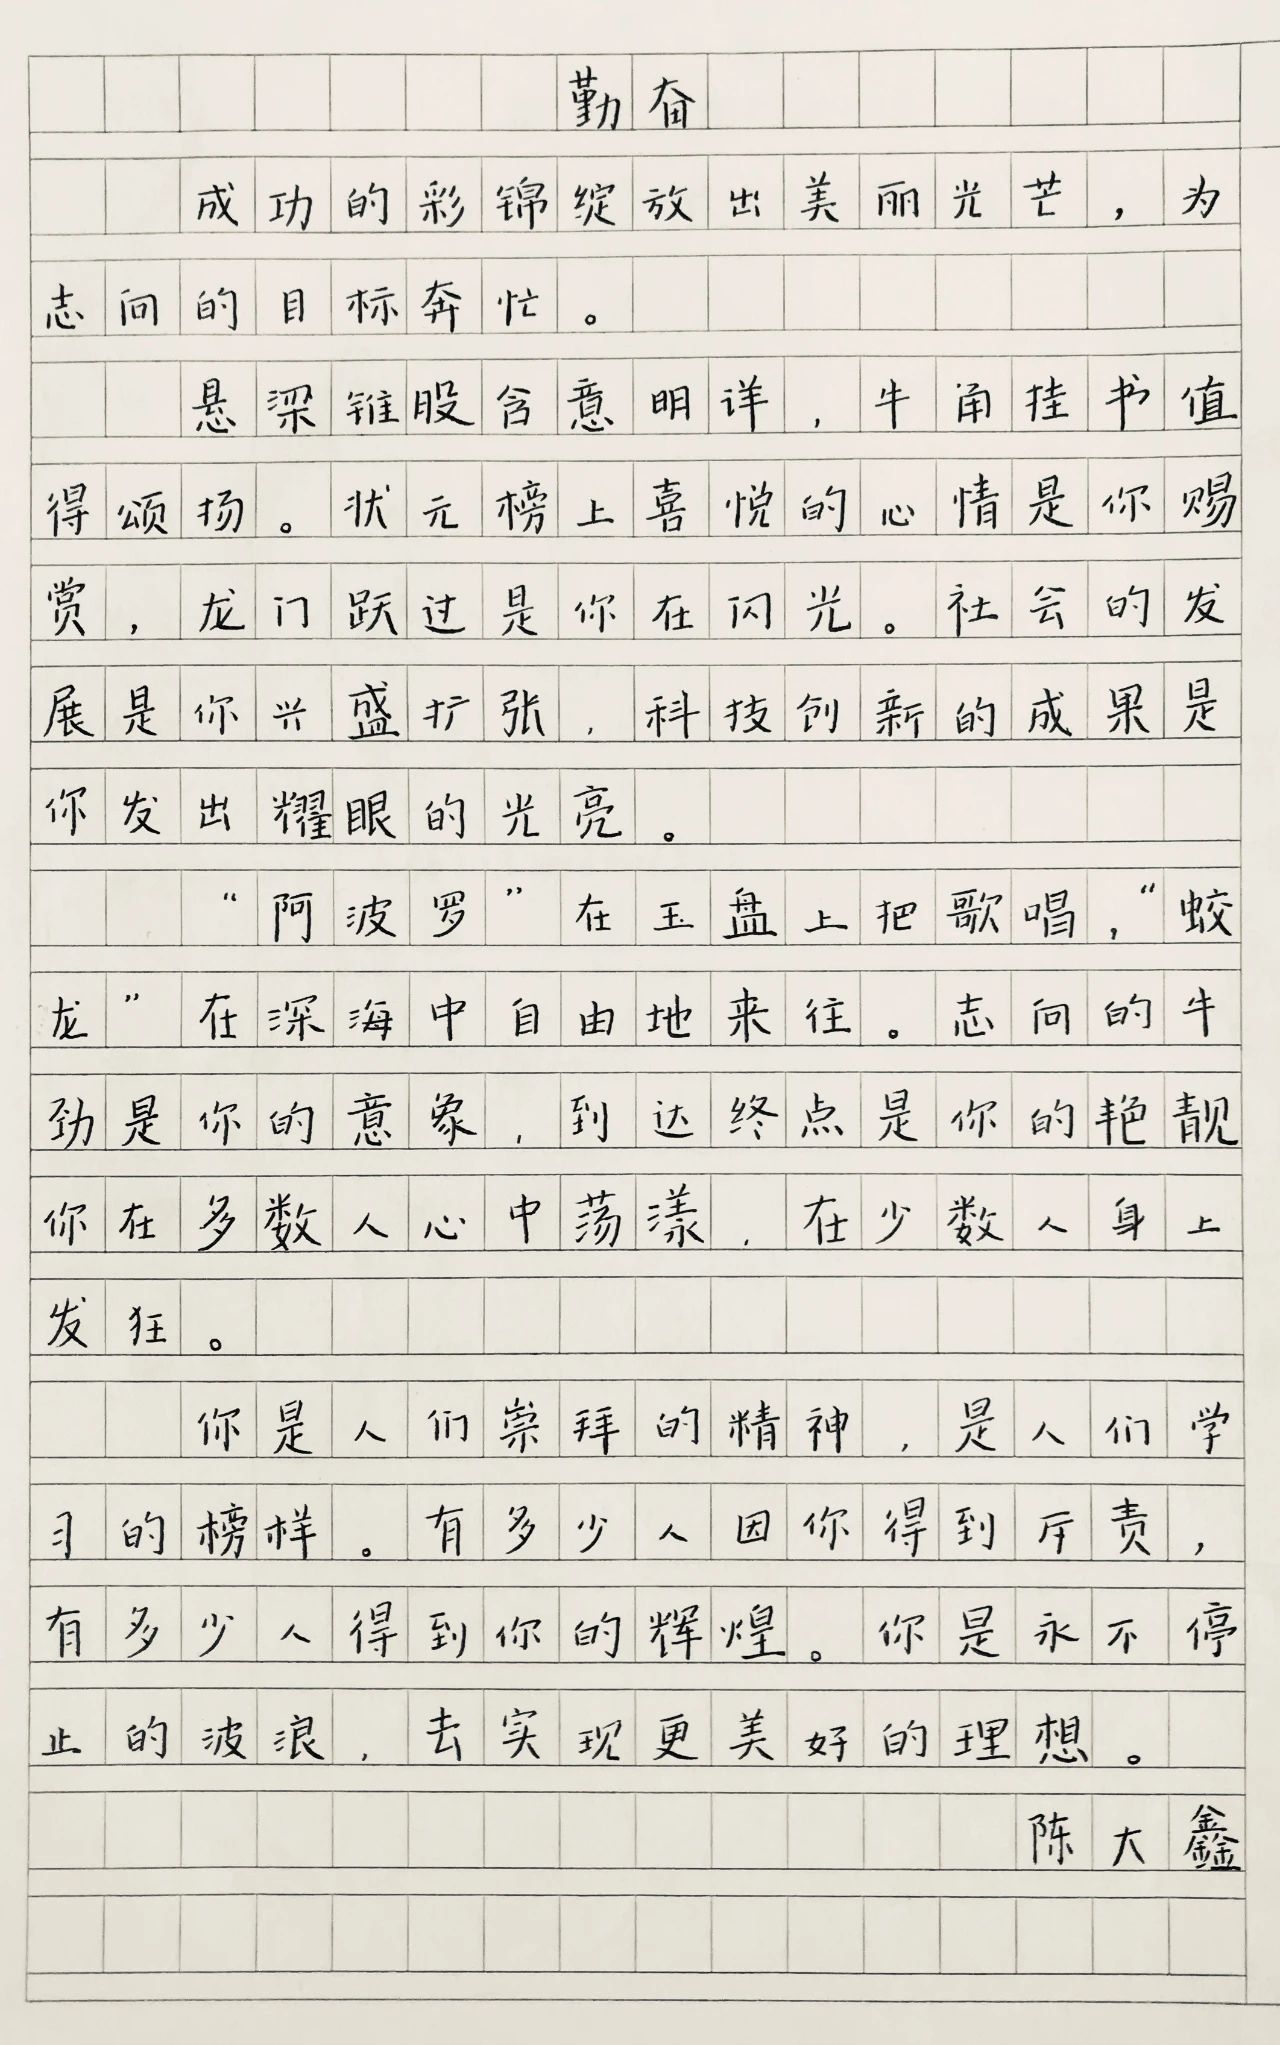 勤奋
成功的彩锦绽放出美丽光芒，为
志向的目标奔忙。
悬梁锥股含意明详，牛角挂书值
得颂扬。状元榜上喜悦的心情是你赐
赏，龙门跃过是你在闪光。社会的发
展是你兴盛扩张，科技创新的成果是
你发出耀眼的光亮。
“阿波罗”在玉盘上把歌唱，“蛟
龙”在深海中自由地来往。志向的牛
劲是你的意象，到达终点是你的艳靓
你在多数人心中荡漾，在少数人身上
发狂。
你是人们崇拜的精神，是人们学
习的榜样。有多少人因你得到斥责，
有多少人得到你的辉煌。你是永不停
止的波浪，去实现更美好的理想。
陈大鑫